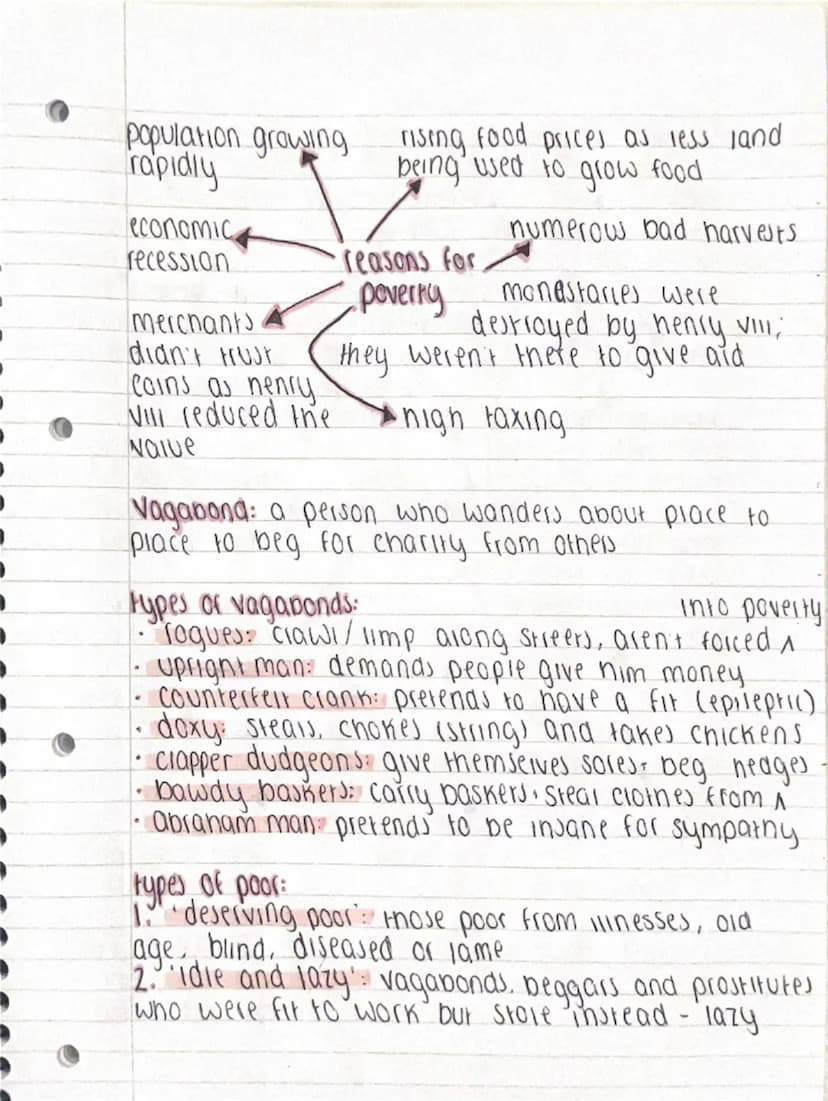 population growing
rapidly
rising food prices as less land
being used to grow food
economic
recession
reasons for
poverty
numerous bad harvests
monastaries were
destroyed by henry VIII;
they weren't there to give aid
merchants
didn't trust
coins as henry
VIII reduced the
value
high taxing
Vagabond: a person who wanders about place to
place to beg for charity from others
types of vagabonds:
into poverty
· rogues: crawl/limp along streets, aren't forced ʌ
· upright man: demands people give him money
· counterfeit crank: pretends to have a fit (epileptic)
· doxy: steals, chokes (string) and takes chickens
· clapper dudgeons: give themselves sores + beg hedges
· bawdy baskets: carry baskets, steal clothes from ʌ
· abraham man: pretends to be insane for sympathy
types of poor:
1. 'deserving poor': those poor from illnesses, old
age, blind, diseased or lame
2. 'idle and lazy': vagabonds, beggars and prostitutes
who were fit to work but stole instead - lazy